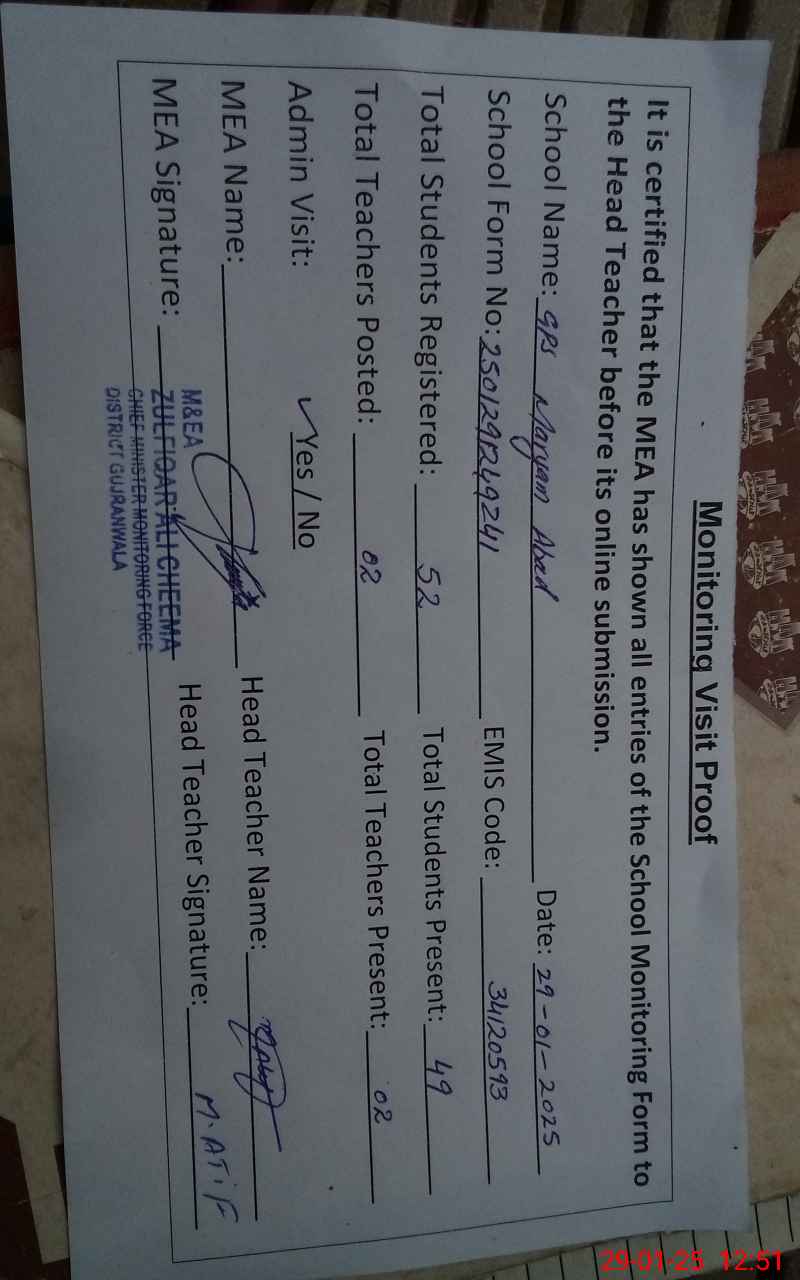 Monitoring Visit Proof
It is certified that the MEA has shown all entries of the School Monitoring Form to
the Head Teacher before its online submission.
School Name: GPS Maryam Abad Date: 29-01-2025
School Form No: 2501291249241 EMIS Code: 34120593
Total Students Registered: 52 Total Students Present: 49
Total Teachers Posted: 02 Total Teachers Present: 02
Admin Visit: ✓Yes / No
MEA Name: Head Teacher Name:
MEA Signature: Head Teacher Signature: M. ATiF
M&EA
ZULFIQAR ALI CHEEMA
CHIEF MINISTER MONITORING FORCE
DISTRICT GUJRANWALA
29-01-25 12:51